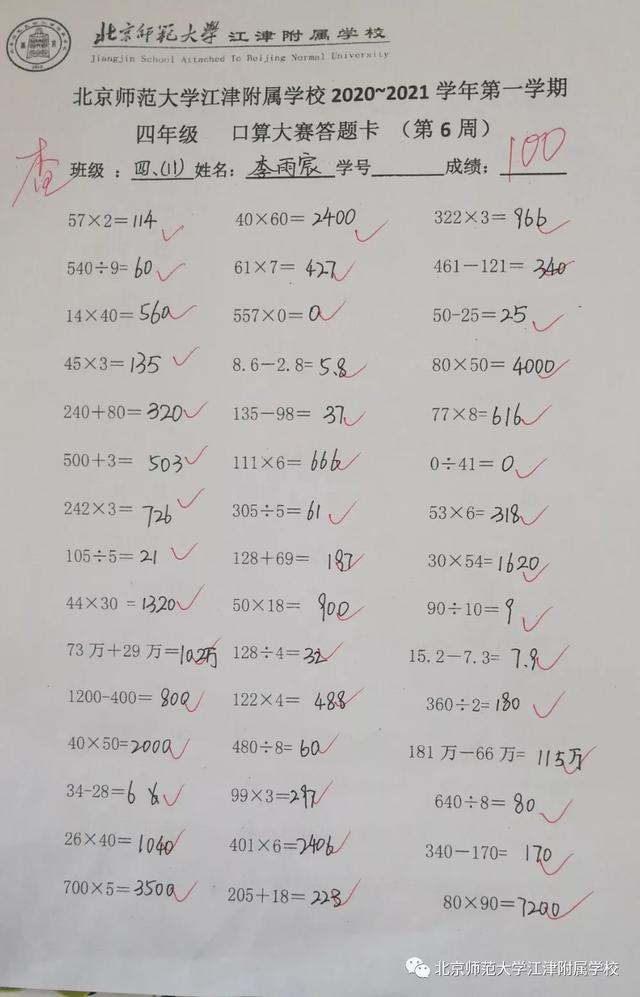 北京师范大学江津附属学校
Jiangjin School Attached To Beijing Normal University
北京师范大学江津附属学校 2020~2021 学年第一学期
四年级 口算大赛答题卡 （第 6 周）
查 班级：四、(11) 姓名：李雨宸 学号 成绩：100
57×2=114 40×60=2400 322×3=966
540÷9=60 61×7=427 461-121=340
14×40=560 557×0=0 50-25=25
45×3=135 8.6-2.8=5.8 80×50=4000
240+80=320 135-98=37 77×8=616
500+3=503 111×6=666 0÷41=0
242×3=726 305÷5=61 53×6=318
105÷5=21 128+69=187 30×54=1620
44×30=1320 50×18=900 90÷10=9
73万+29万=102万 128÷4=32 15.2-7.3=7.9
1200-400=800 122×4=488 360÷2=180
40×50=2000 480÷8=60 181万-66万=115万
34-28=6 99×3=297 640÷8=80
26×40=1040 401×6=2406 340-170=170
700×5=3500 205+18=223 80×90=7200
北京师范大学江津附属学校